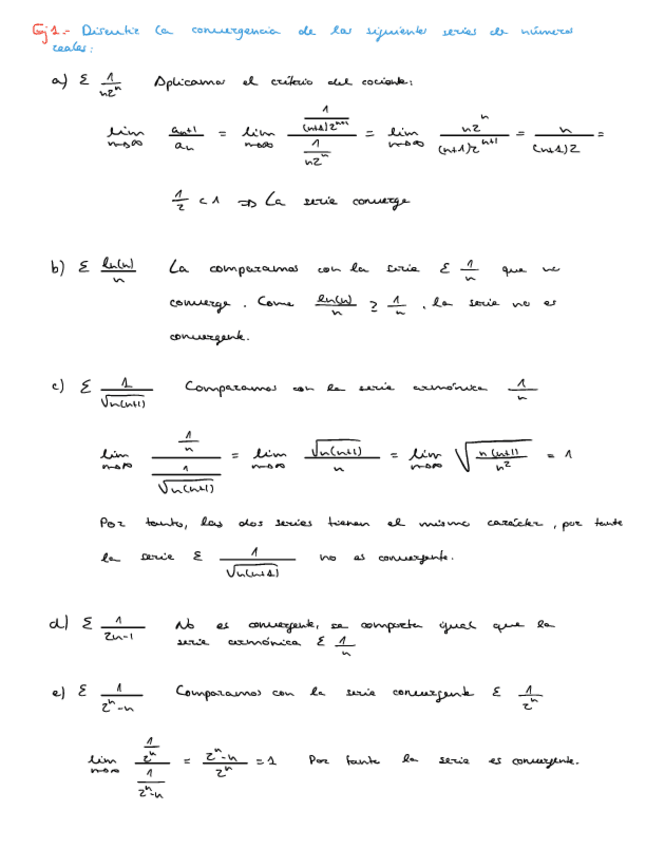 Ej 1.- Discutir la convergencia de las siguientes series de números
reales:
a) Σ 1/(n2^n) Aplicamos el criterio del cociente:
lim n→∞ a_{n+1}/a_n = lim n→∞ (1/((n+1)2^{n+1}))/(1/(n2^n)) = lim n→∞ n2^n/((n+1)2^{n+1}) = n/((n+1)2) =
1/2 < 1 ⇒ La serie converge
b) Σ ln(n)/n La comparamos con la serie Σ 1/n que no
converge. Como ln(n)/n ≥ 1/n, la serie no es
convergente.
c) Σ 1/√(n(n+1)) Comparamos con la serie armónica 1/n
lim n→∞ (1/n)/(1/√(n(n+1))) = lim n→∞ √(n(n+1))/n = lim n→∞ √(n(n+1)/n^2) = 1
Por tanto, las dos series tienen el mismo carácter, por tanto
la serie Σ 1/√(n(n+1)) no es convergente.
d) Σ 1/(2n-1) No es convergente, se comporta igual que la
serie armónica Σ 1/n
e) Σ 1/(2^n-n) Comparamos con la serie convergente Σ 1/2^n
lim n→∞ (1/2^n)/(1/(2^n-n)) = (2^n-n)/2^n = 1 Por tanto la serie es convergente.